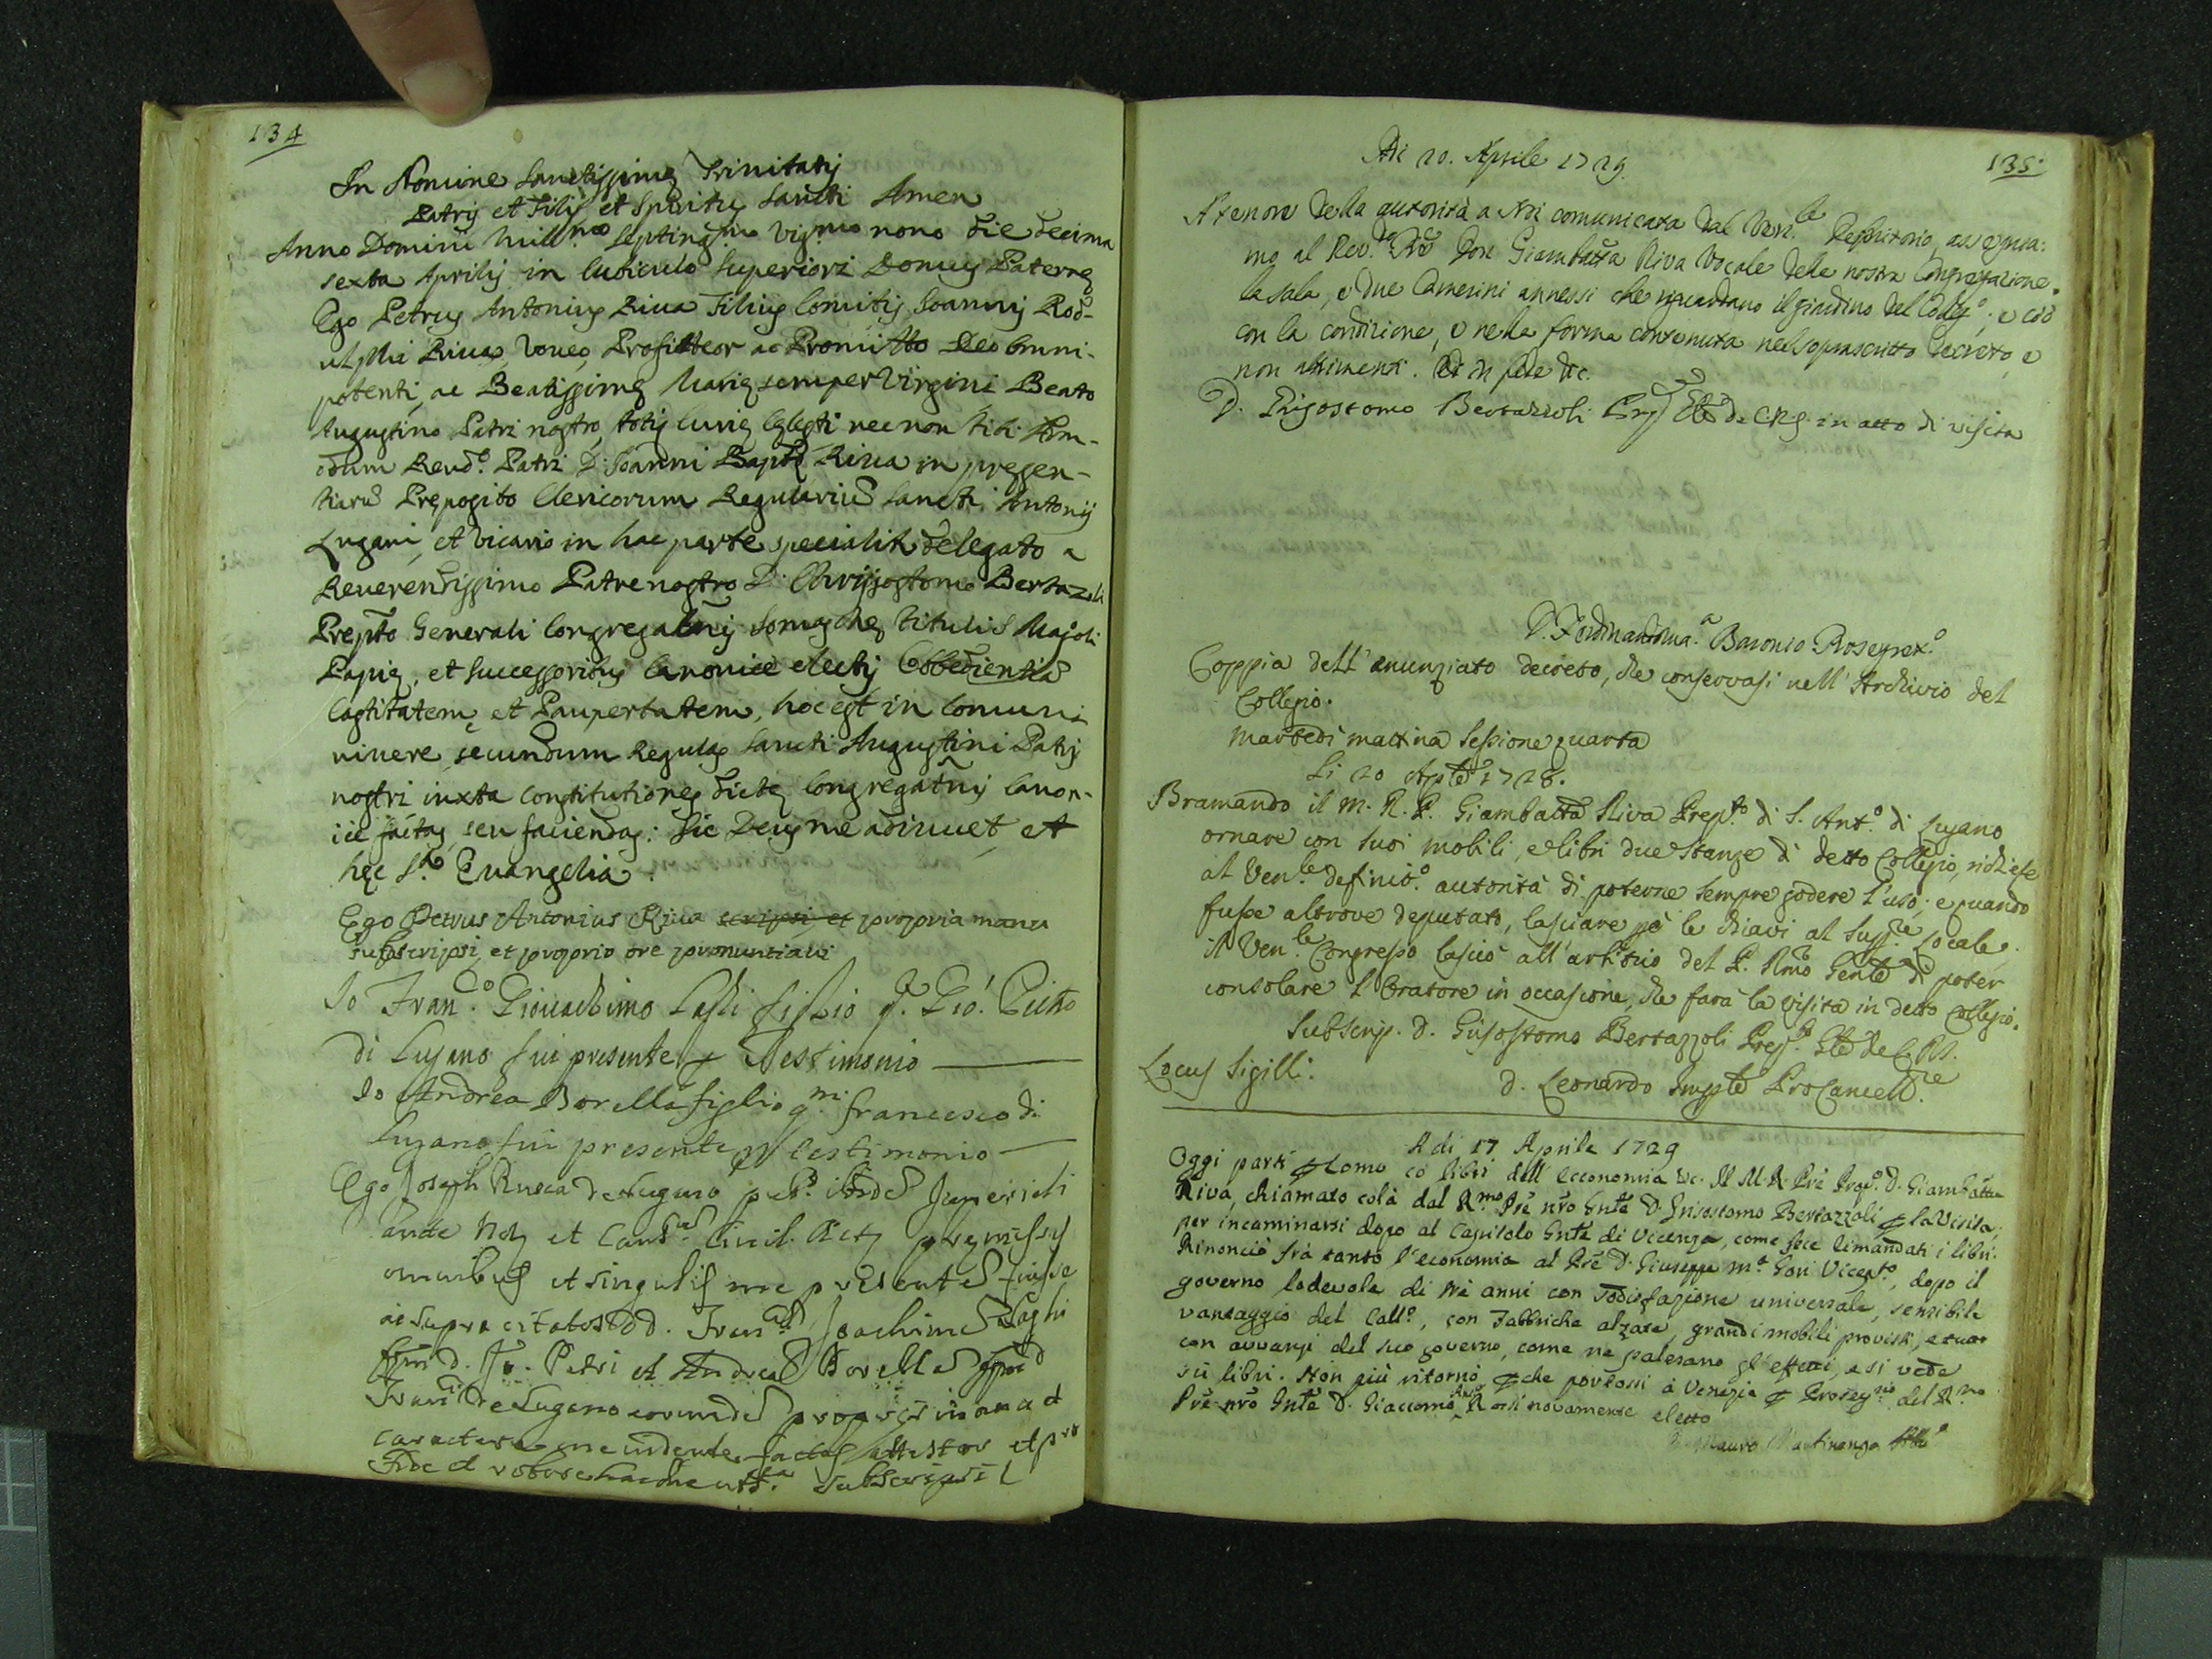 134
In Nomine Sanctissimę Trinitatis
Patris et Filij et Spiritus Sancti Amen
Anno Domini Mill.mo Septing.mo Vig.mo nono die decima
sexta Aprilis in Cubiculo Superiori Domus Paternę
Ego Petrus Antonius Riua Filius Comitis Joannis Rod-
ulphi Riua, Voueo, Profiteor ac Promitto Deo Omni-
potenti, ac Beatissimę Marię semper Virgini Beato
Augustino Patri nostro, totij Curię Cęlesti nec non tibi Adm-
odum Reud.o Patri D. Joanni Baptę Riua in pręsen-
tiarũ Pręposito Clericorum Regulariũ Sancti Antonij
Lugani, et Vicario in hac parte specialit delegato a
Reuerendissimo Patre nostro D. Chrijsostomo Bertazoli
Prępto Generali Congregatñis Somaschę tituli S Majoli
Papię, et Successoribus Canonicè electis Obbedientiã
Castitatem, et Paupertatem, hoc est in Comuni
viuere secundum Regulas Sancti Augustini Patris
nostri iuxta Constitutiones dictę Congregatñis Canon-
icè factas, seu faciendas: Sic Deus me adiuuet, et
hęc S.ta Euangelia.
Ego Petrus Antonius Riua scripsi et propria manu
subscripsi, et proprio ore pronuntiaui
Io Fran.co Giouachimo Laghi figlio q. Gio: Pietro
di Lugano fui presente p Testimonio
Io Andrea Borella figlio q.m francesco di
Lugano fui presente p testimonio
Ego Joseph Rusca de Lugano
et Canc. Ciuil. pręmissis
omnibus et singulis me presente fuisse
ac supra citatos D D. Joachimũ Laghi
Petri et Andrea Borella
de Lugano propria manu et
caractere me uidente factas attestor et pro
fide et robore subscripsi
135
Adi 20. Aprile 1729.
A tenore della autorità a Noi comunicata dal Ven.le Definitorio, assegnia:
mo al Reu.do Pre Don Giambatta Riva Vocale della nostra Congregazione.
la sala, e due Camerini annessi che riguardano il giardino del Colleg.o; e ciò
con la condizione, e nella forma contenuta nel soprascritto decreto, e
non altrimenti. Et in fede &c.
D. Grigostomo Bertazzoli Prep Gle de CRS. in atto di visita
D. Ferdinando Ma.a Baronio Prosegret.o
Coppia dell'anunziato decreto, che conservasi nell'Archivio del
Collegio.
Martedì mattina Sessione quarta
Li 20 Aple 1728.
Bramando il M. R. P. Giambatta Riva Prep.to di S. Ant.o di Lugano
ornare con suoi mobili, e libri due Stanze di detto Collegio, richiese
al Ven.le definit.o autorità di poterne sempre godere l'uso; e quando
fusse altrove deputato, lasciare pò le chiavi al Sup.re Locale.
il Ven.le Congresso lasciò all'arbitrio del P. Rmo Gente di poter
consolare l'Oratore in occasione, che farà la visita in detto Collegio.
Subscrip. D. Grisostomo Bertazzoli Prep.to Gle de C. R. S.
Locus Sigilli.
D. Leonardo ProCancell.re
Adi 17 Aprile 1729
Oggi partì p Como cò libri dell'economia &c. Il M. R. Pre Prep.o D. Giambatta
Riva, chiamato colà dal R.mo Pre nro Gnte D. Grisostomo Bertazzoli p la Visita,
per incaminarsi dopo al Capitolo Gnte di Vicenza, come fece limandati i libri.
Rinonciò frà tanto l'economia al Pre D. Giuseppe M.a Gori Vicep.to, dopo il
governo lodevole di trè anni con sodisfazione universale, sensibile
vantaggio del Coll.o, con Fabbriche alzate, grandi mobili provisti, e tutto
con avvanzi del suo governo, come ne palesano gl'effetti, e si vede
sù libri. Non più ritornò, p che portossi à Venezia p Proseg.rio del R.mo
Pre nro Gnte D. Giacomo Anto Rossi novamente eletto
D. Mauro Martinengo Atti.o